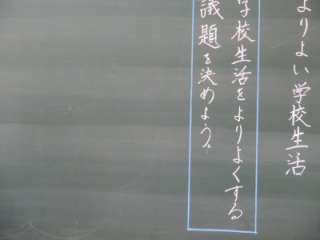 よりよい学校生活
学校生活をよりよくする
議題を決めよう。